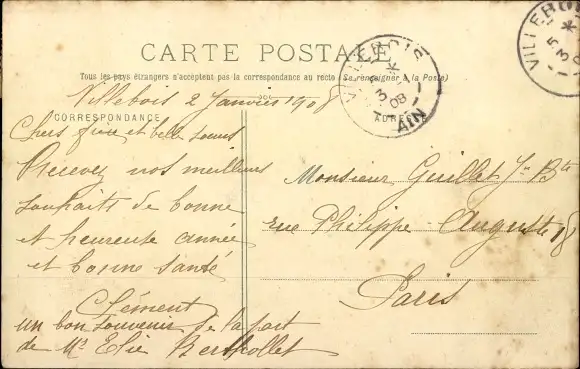 CARTE POSTALE
Tous les pays étrangers n'acceptent pas la correspondance au recto (Se renseigner à la Poste)
VILLEBOIS
5 * 3 -1 08
AIN
VILLEBOIS
Villebois 2 Janvier 1908
CORRESPONDANCE
ADRESSE
Chers frère et belle soeur
Recevez nos meilleurs
souhaits de bonne
et heureuse année
et bonne santé
Clément
un bon souvenir de la part
de Mr Elie Berthollet
Monsieur Guillet Jn Bte
rue Philippe-Auguste 18
Paris